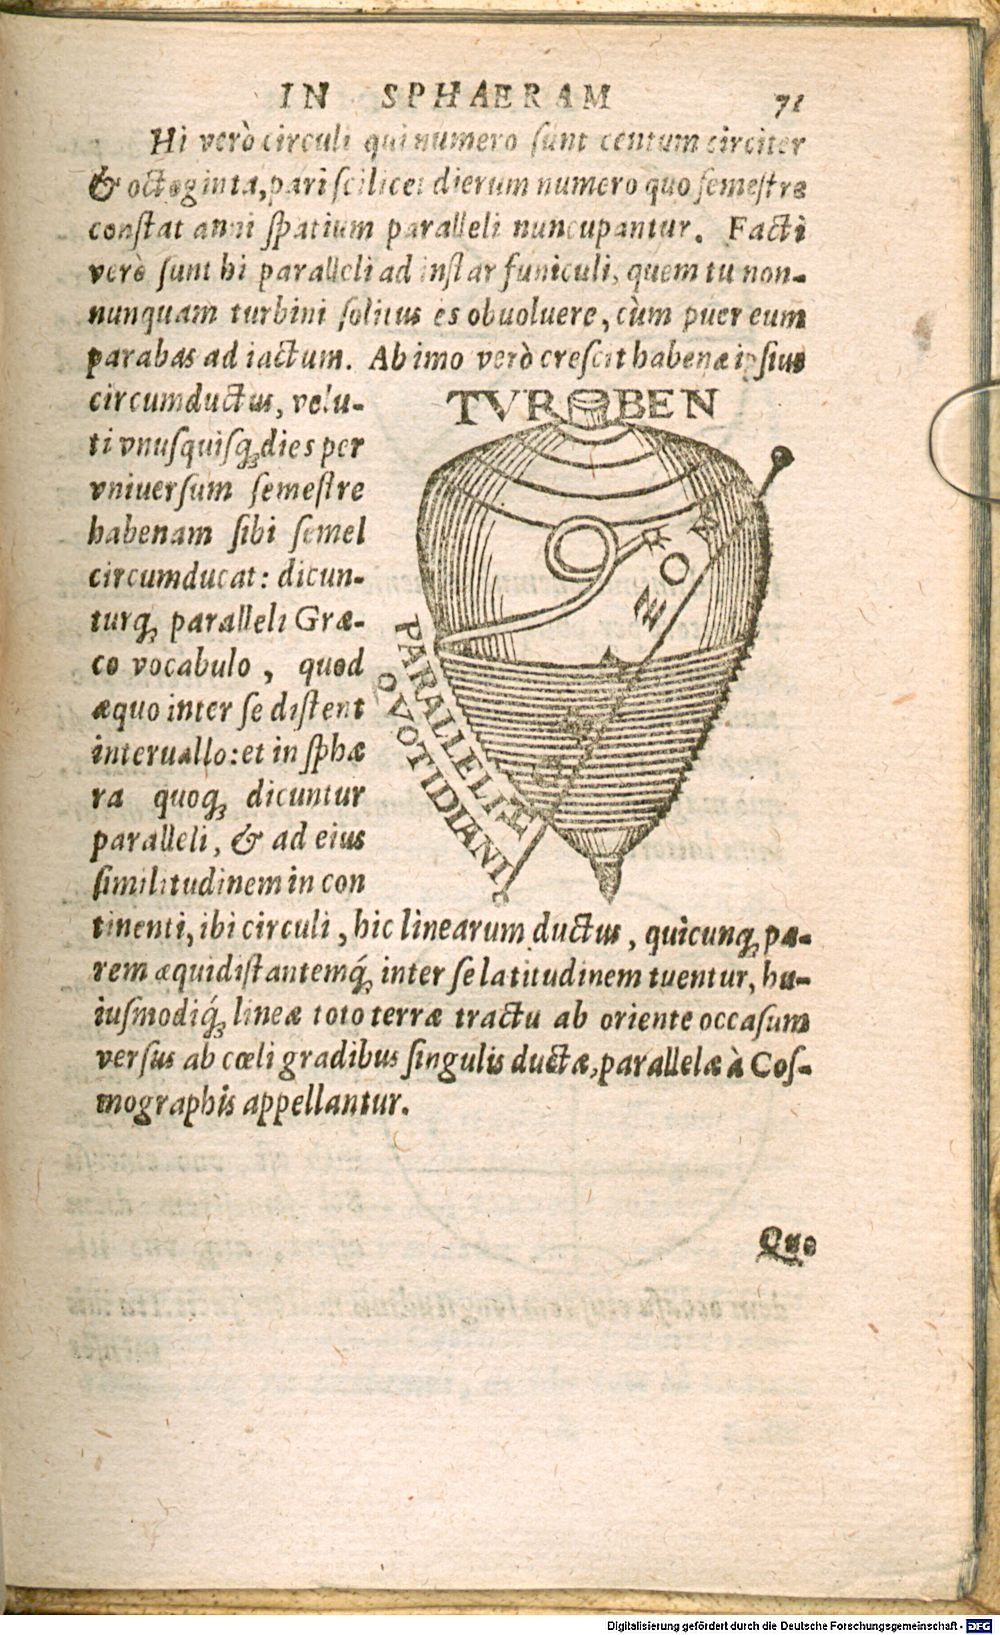 IN SPHAERAM 71
Hi verò circuli qui numero sunt centum circiter
& octoginta, pari scilicet dierum numero quo semestre
constat anni spatium paralleli nuncupantur. Facti
verò sunt hi paralleli ad instar funiculi, quem tu non-
nunquam turbini solitus es obuoluere, cùm puer eum
parabas ad iactum. Ab imo verò crescit habenæ ipsius
circumductus, velu-
ti vnusquisq; dies per
vniuersum semestre
habenam sibi semel
circumducat: dicun-
turq; paralleli Græ-
co vocabulo, quod
æquo inter se distent
interuallo: et in sphæ
ra quoq; dicuntur
paralleli, & ad eius
similitudinem in con
TVR BEN
PARALLELI
QVOTIDIANI
tinenti, ibi circuli, hic linearum ductus, quicunq; pa-
rem æquidistantemq́; inter se latitudinem tuentur, hu-
iusmodiq́; lineæ toto terræ tractu ab oriente occasum
versus ab cœli gradibus singulis ductæ, parallelæ à Cos-
mographis appellantur.
Quo
Digitalisierung gefördert durch die Deutsche Forschungsgemeinschaft - DFG